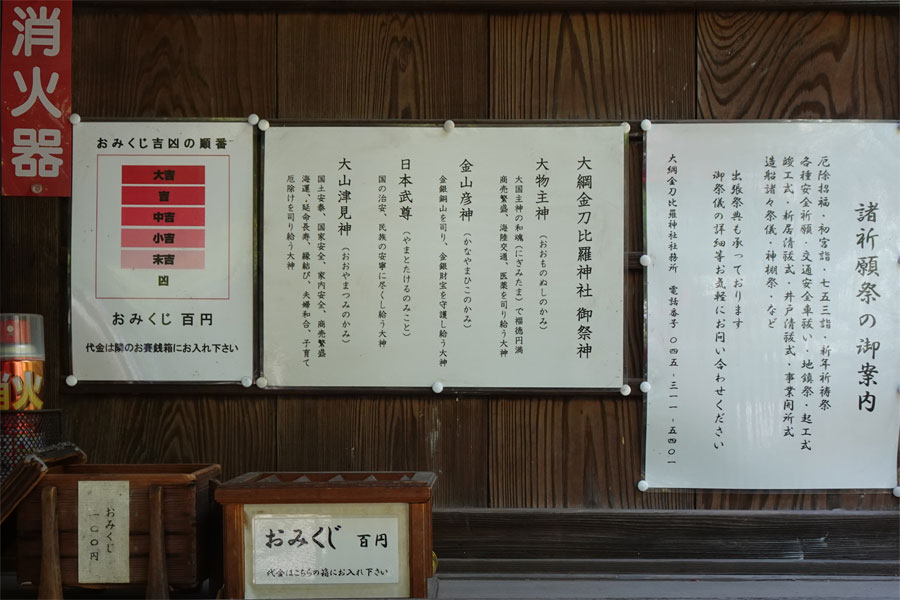 消火器
おみくじ吉凶の順番
大吉
吉
中吉
小吉
末吉
凶
おみくじ 百円
代金は隣のお賽銭箱にお入れ下さい
大綱金刀比羅神社 御祭神
大物主神（おおものぬしのかみ）
大国主神の和魂（にぎみたま）で福徳円満
商売繁盛、海陸交通、医薬を司り給う大神
金山彦神（かなやまひこのかみ）
金銀銅山を司り、金銀財宝を守護し給う大神
日本武尊（やまとたけるのみこと）
国の治安、民族の安寧に尽くし給う大神
大山津見神（おおやまつみのかみ）
国土安泰、国家安全、家内安全、商売繁盛
海運、延命長寿、縁結び、夫婦和合、子育て
厄除けを司り給う大神
諸祈願祭の御案内
厄除招福・初宮詣・七五三詣・新年祈祷祭
各種安全祈願・交通安全車祓い・地鎮祭・起工式
竣工式・新居清祓式・井戸清祓式・事業開所式
造船諸々祭儀・神棚祭・など
出張祭典も承っております
御祭儀の詳細等お気軽にお問い合わせください
大綱金刀比羅神社社務所 電話番号 〇四五・三一一・五四〇一
消火
おみくじ
一〇〇円
おみくじ 百円
代金はこちらの箱にお入れ下さい